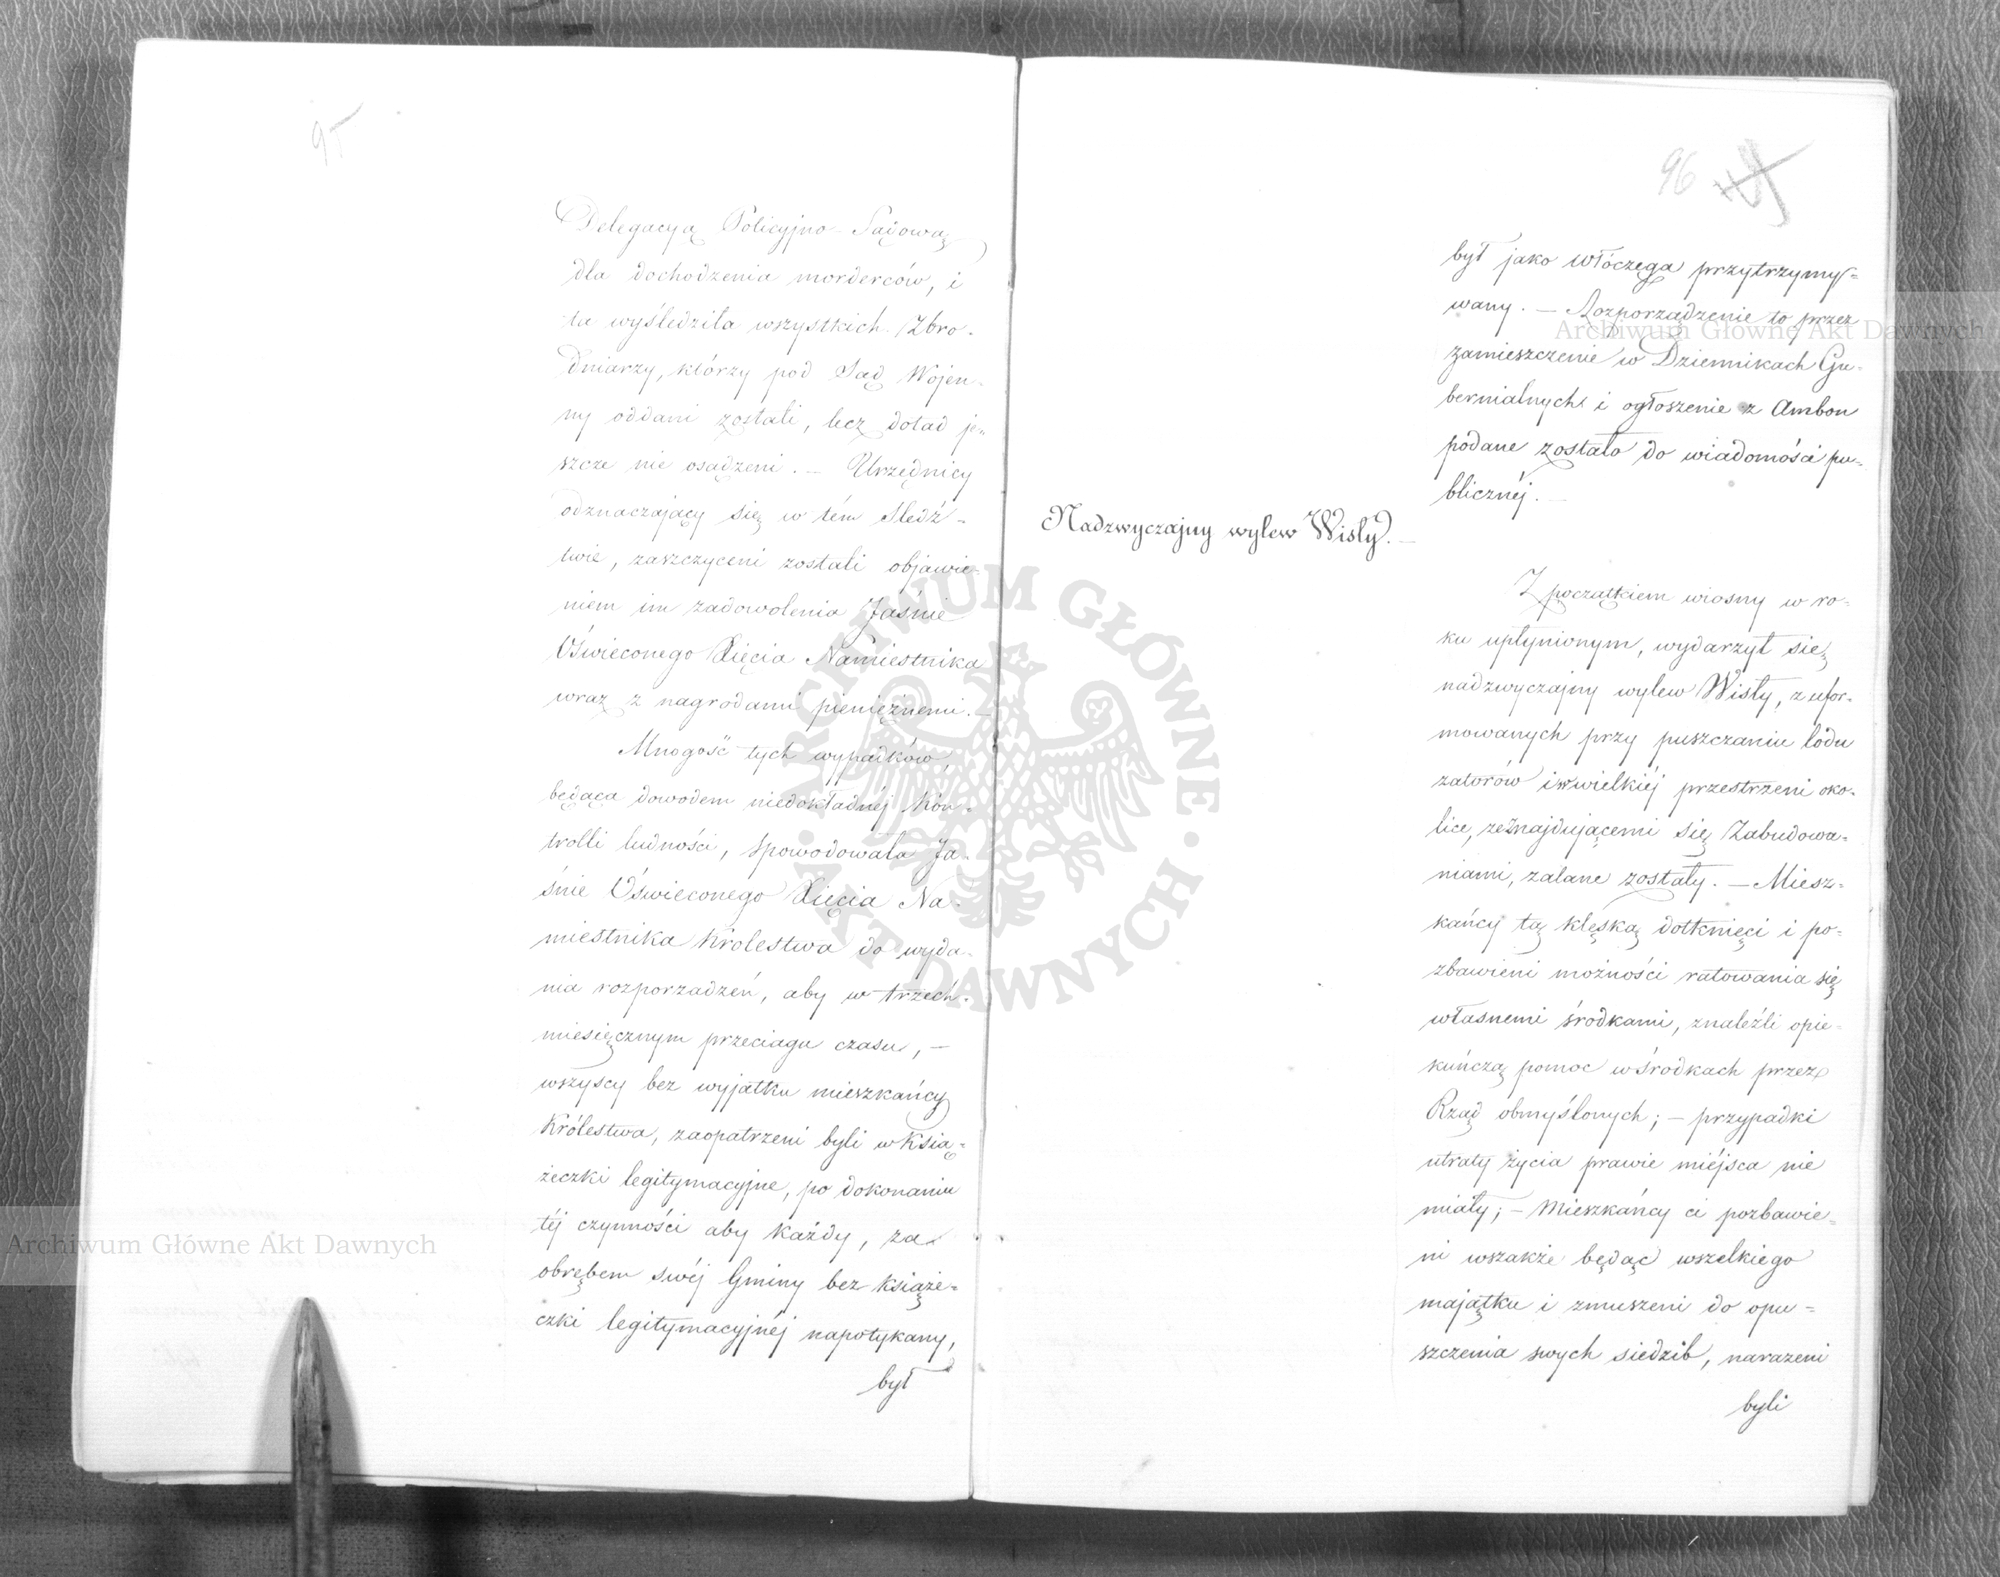 95
Delegacyą Policyjno-Sądową
dla dochodzenia morderców, i
ta wyśledziła wszystkich Zbro-
dniarzy, którzy pod Sąd Wojen-
ny oddani zostali, lecz dotąd je-
szcze nie osądzeni. — Urzędnicy
odznaczający się w tém śledź-
twie, zaszczyceni zostali objawie-
niem im zadowolenia Jaśnie
Oświeconego Xięcia Namiestnika
wraz z nagrodami pieniężnemi. —
Mnogość tych wypadków,
będąca dowodem niedokładnéj Kon-
trolli ludności, spowodowała Ja-
śnie Oświeconego Xięcia Na-
miestnika Królestwa do wyda-
nia rozporządzeń, aby w trzech-
miesięcznym przeciągu czasu, —
wszyscy bez wyjątku mieszkańcy
Królestwa, zaopatrzeni byli w Ksią-
żeczki legitymacyjne, po dokonaniu
téj czynności aby każdy, za
obrębem swéj Gminy bez książe-
czki legitymacyjnéj napotykany,
był
96
był jako włóczęga przytrzymy-
wany. — Rozporządzenie to przez
zamieszczenie w Dziennikach Gu-
bernialnych i ogłoszenie z Ambon
podane zostało do wiadomości pu-
blicznéj. —
Nadzwyczajny wylew Wisły. —
Z początkiem wiosny w ro-
ku upłynionym, wydarzył się
nadzwyczajny wylew Wisły, z ufor-
mowanych przy puszczaniu lodu
zatorów i w wielkiéj przestrzeni oko-
lice, ze znajdującemi się Zabudowa-
niami, zalane zostały. — Miesz-
kańcy tą klęską dotknięci i po-
zbawieni możności ratowania się
własnemi środkami, znaleźli opie-
kuńczą pomoc w środkach przez
Rząd obmyślonych; — przypadki
utraty życia prawie miéjsca nie
miały; — Mieszkańcy ci pozbawie-
ni wszakże będąc wszelkiego
majątku i zmuszeni do opu-
szczenia swych siedzib, narażeni
byli
Archiwum Główne Akt Dawnych
Archiwum Główne Akt Dawnych
ARCHIWUM GŁÓWNE · AKT DAWNYCH ·